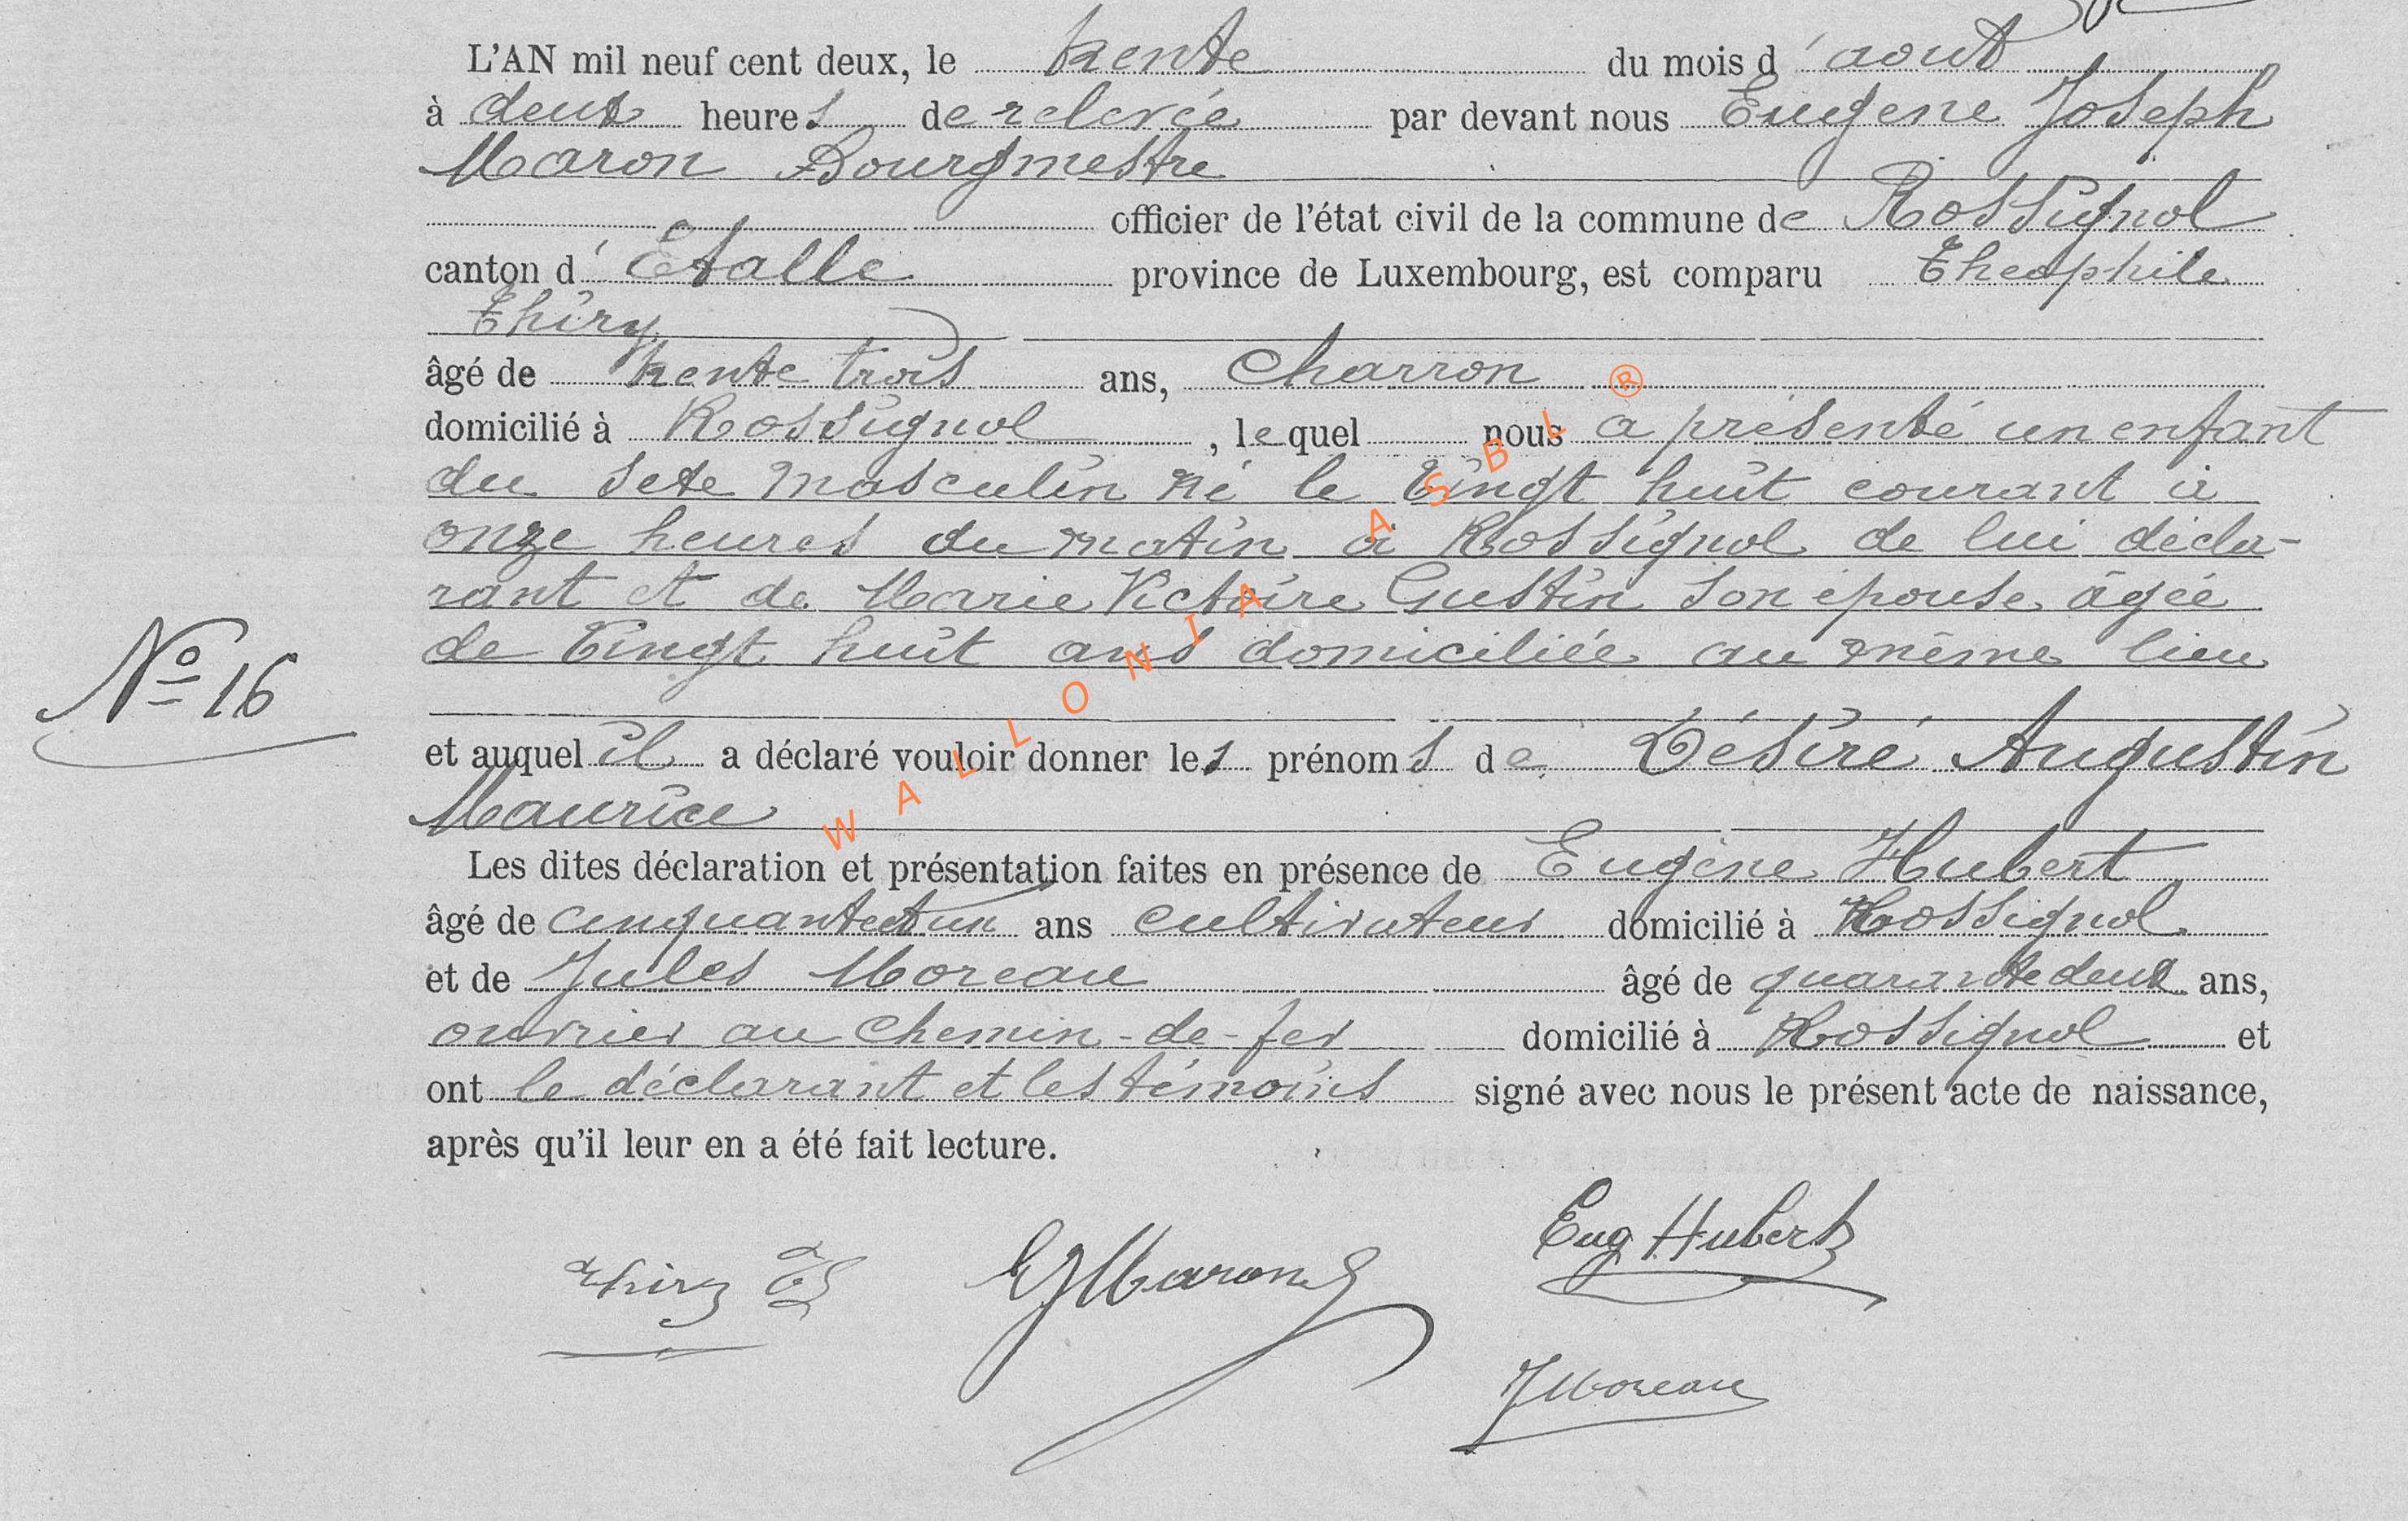 L'AN mil neuf cent deux, le trente du mois d'aout
à deux heures de relevée par devant nous Eugène Joseph
Maron Bourgmestre
officier de l'état civil de la commune de Rossignol
canton d'Etalle province de Luxembourg, est comparu Théophile
Thiry
âgé de trente trois ans, charron
domicilié à Rossignol, lequel nous a présenté un enfant
du sexe masculin né le vingt huit courant à
onze heures du matin à Rossignol de lui décla-
rant et de Marie Victoire Gustin son épouse âgée
de vingt huit ans domiciliée au même lieu
N° 16
et auquel il a déclaré vouloir donner les prénoms de Désiré Augustin
Maurice
Les dites déclaration et présentation faites en présence de Eugène Hubert
âgé de cinquante et un ans cultivateur domicilié à Rossignol
et de Jules Moreau âgé de quarante deux ans,
ouvrier au chemin-de-fer domicilié à Rossignol et
ont le déclarant et les témoins signé avec nous le présent acte de naissance,
après qu'il leur en a été fait lecture.
Eug Hubert
Thiry T
EJMaron
JMoreau
WALLONIA ASBL ®